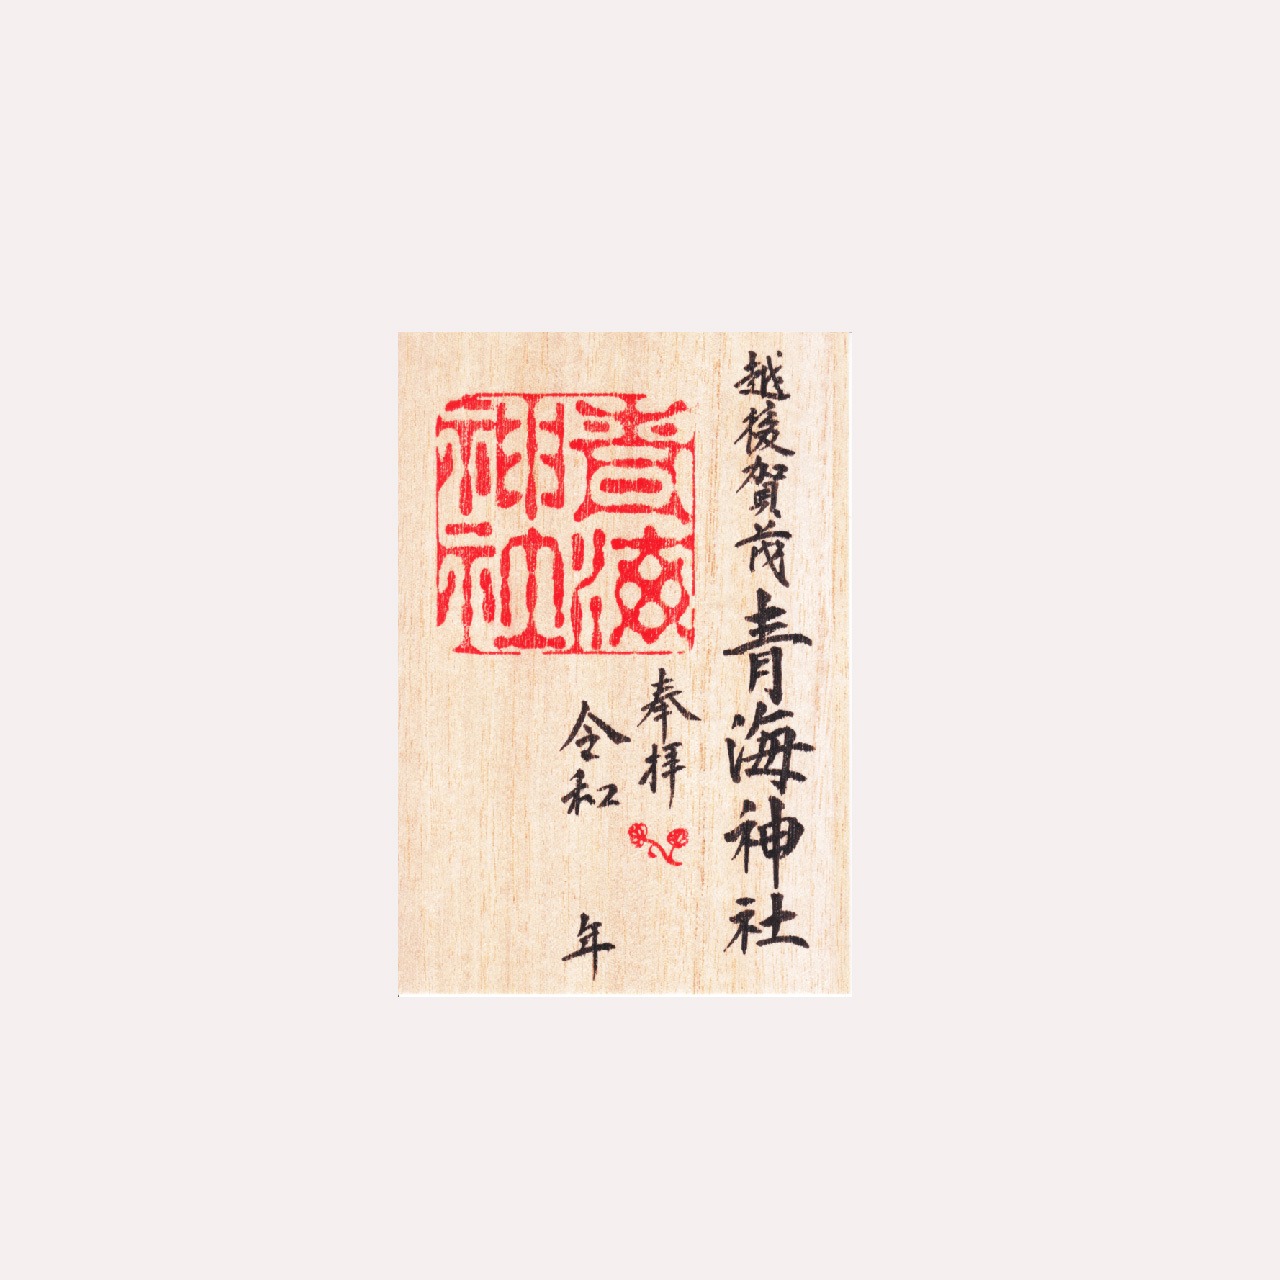 越後賀茂青海神社
奉拝
令和 年
青海
神社